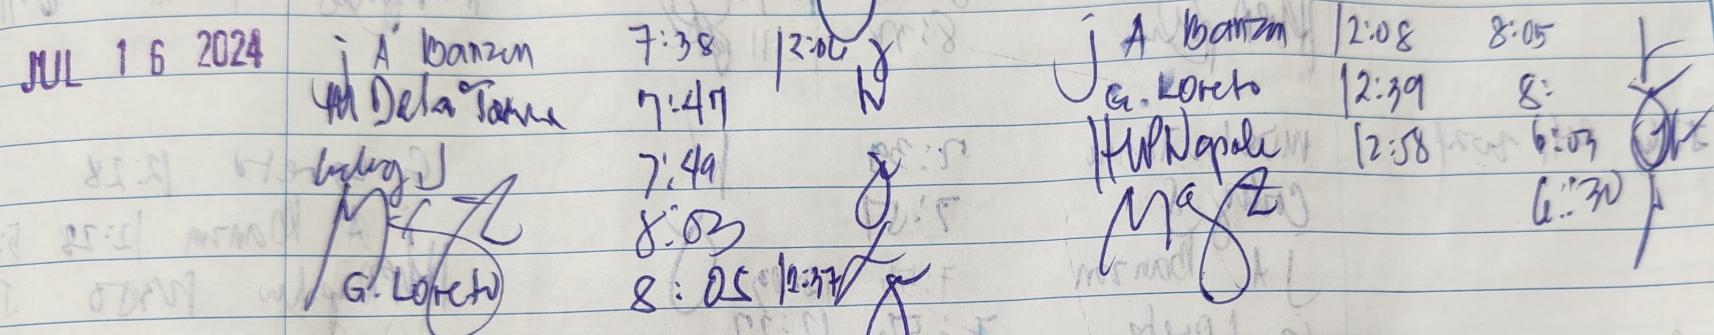 JUL 16 2024 j A Banzon 7:38 12:06 j A Banzon 12:08 8:05
M Dela Torre 7:47 G. Loreto 12:39 8:
7:49 HWP Nepale 12:58 6:03
8:03 6:30
G. Loreto 8:05 12:37